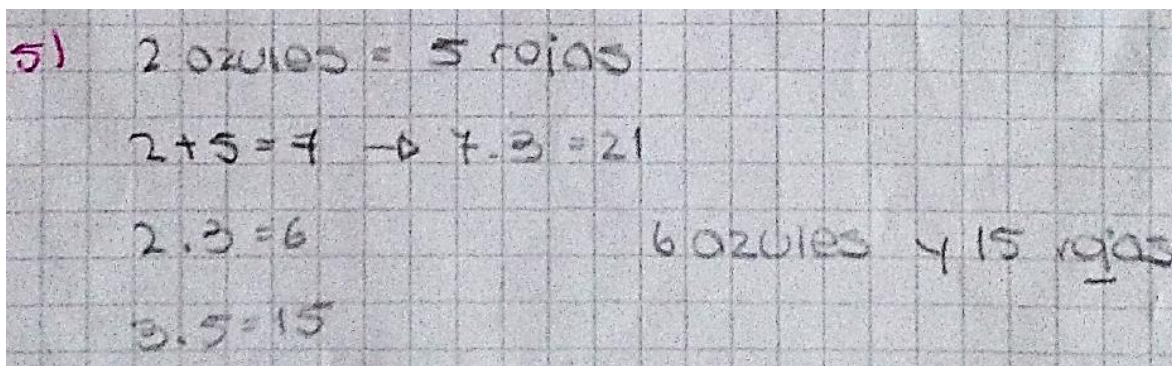 5) 2 azules = 5 rojas
2+5=7 → 7.3=21
2.3=6
6 azules y 15 rojas
3.5=15